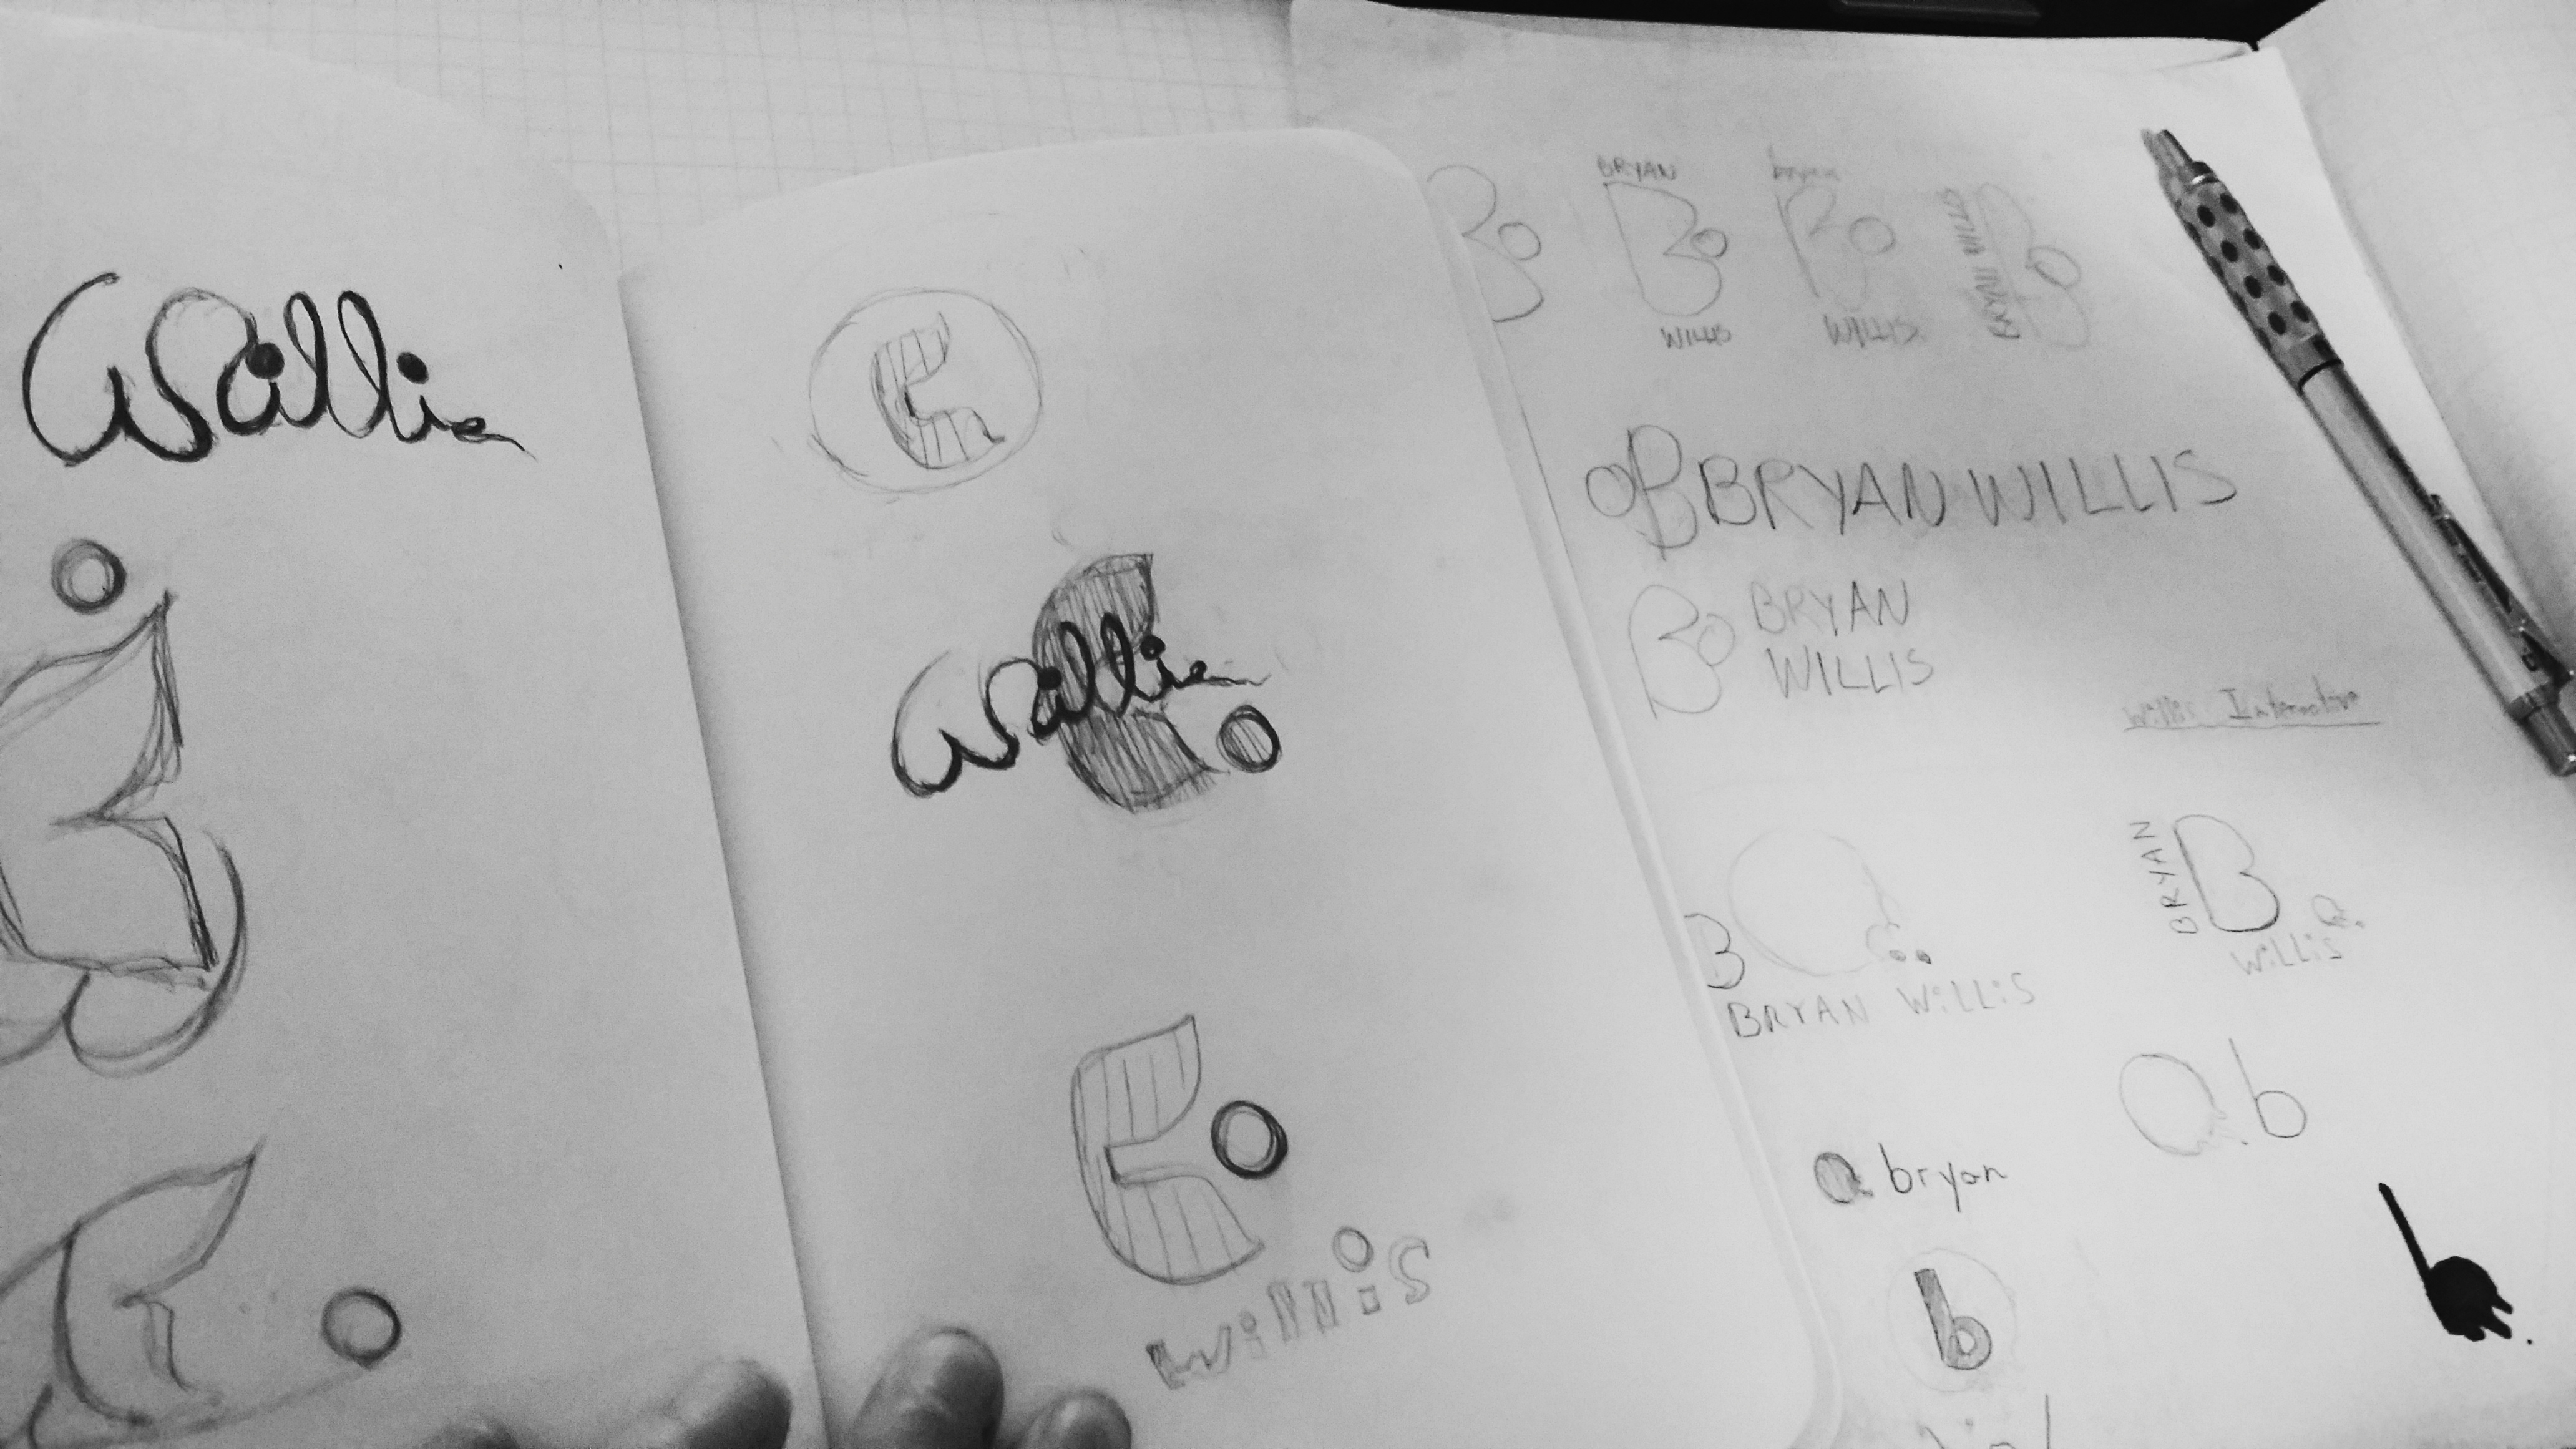 Willis
Willis
Willis
BRYAN
WILLIS
bryan
WILLIS
BRYAN WILLIS
B BRYAN WILLIS
B BRYAN
WILLIS
Willis Interactive
B
BRYAN WILLIS
BRYAN
B
WiLLiS
b
bryan
b
b